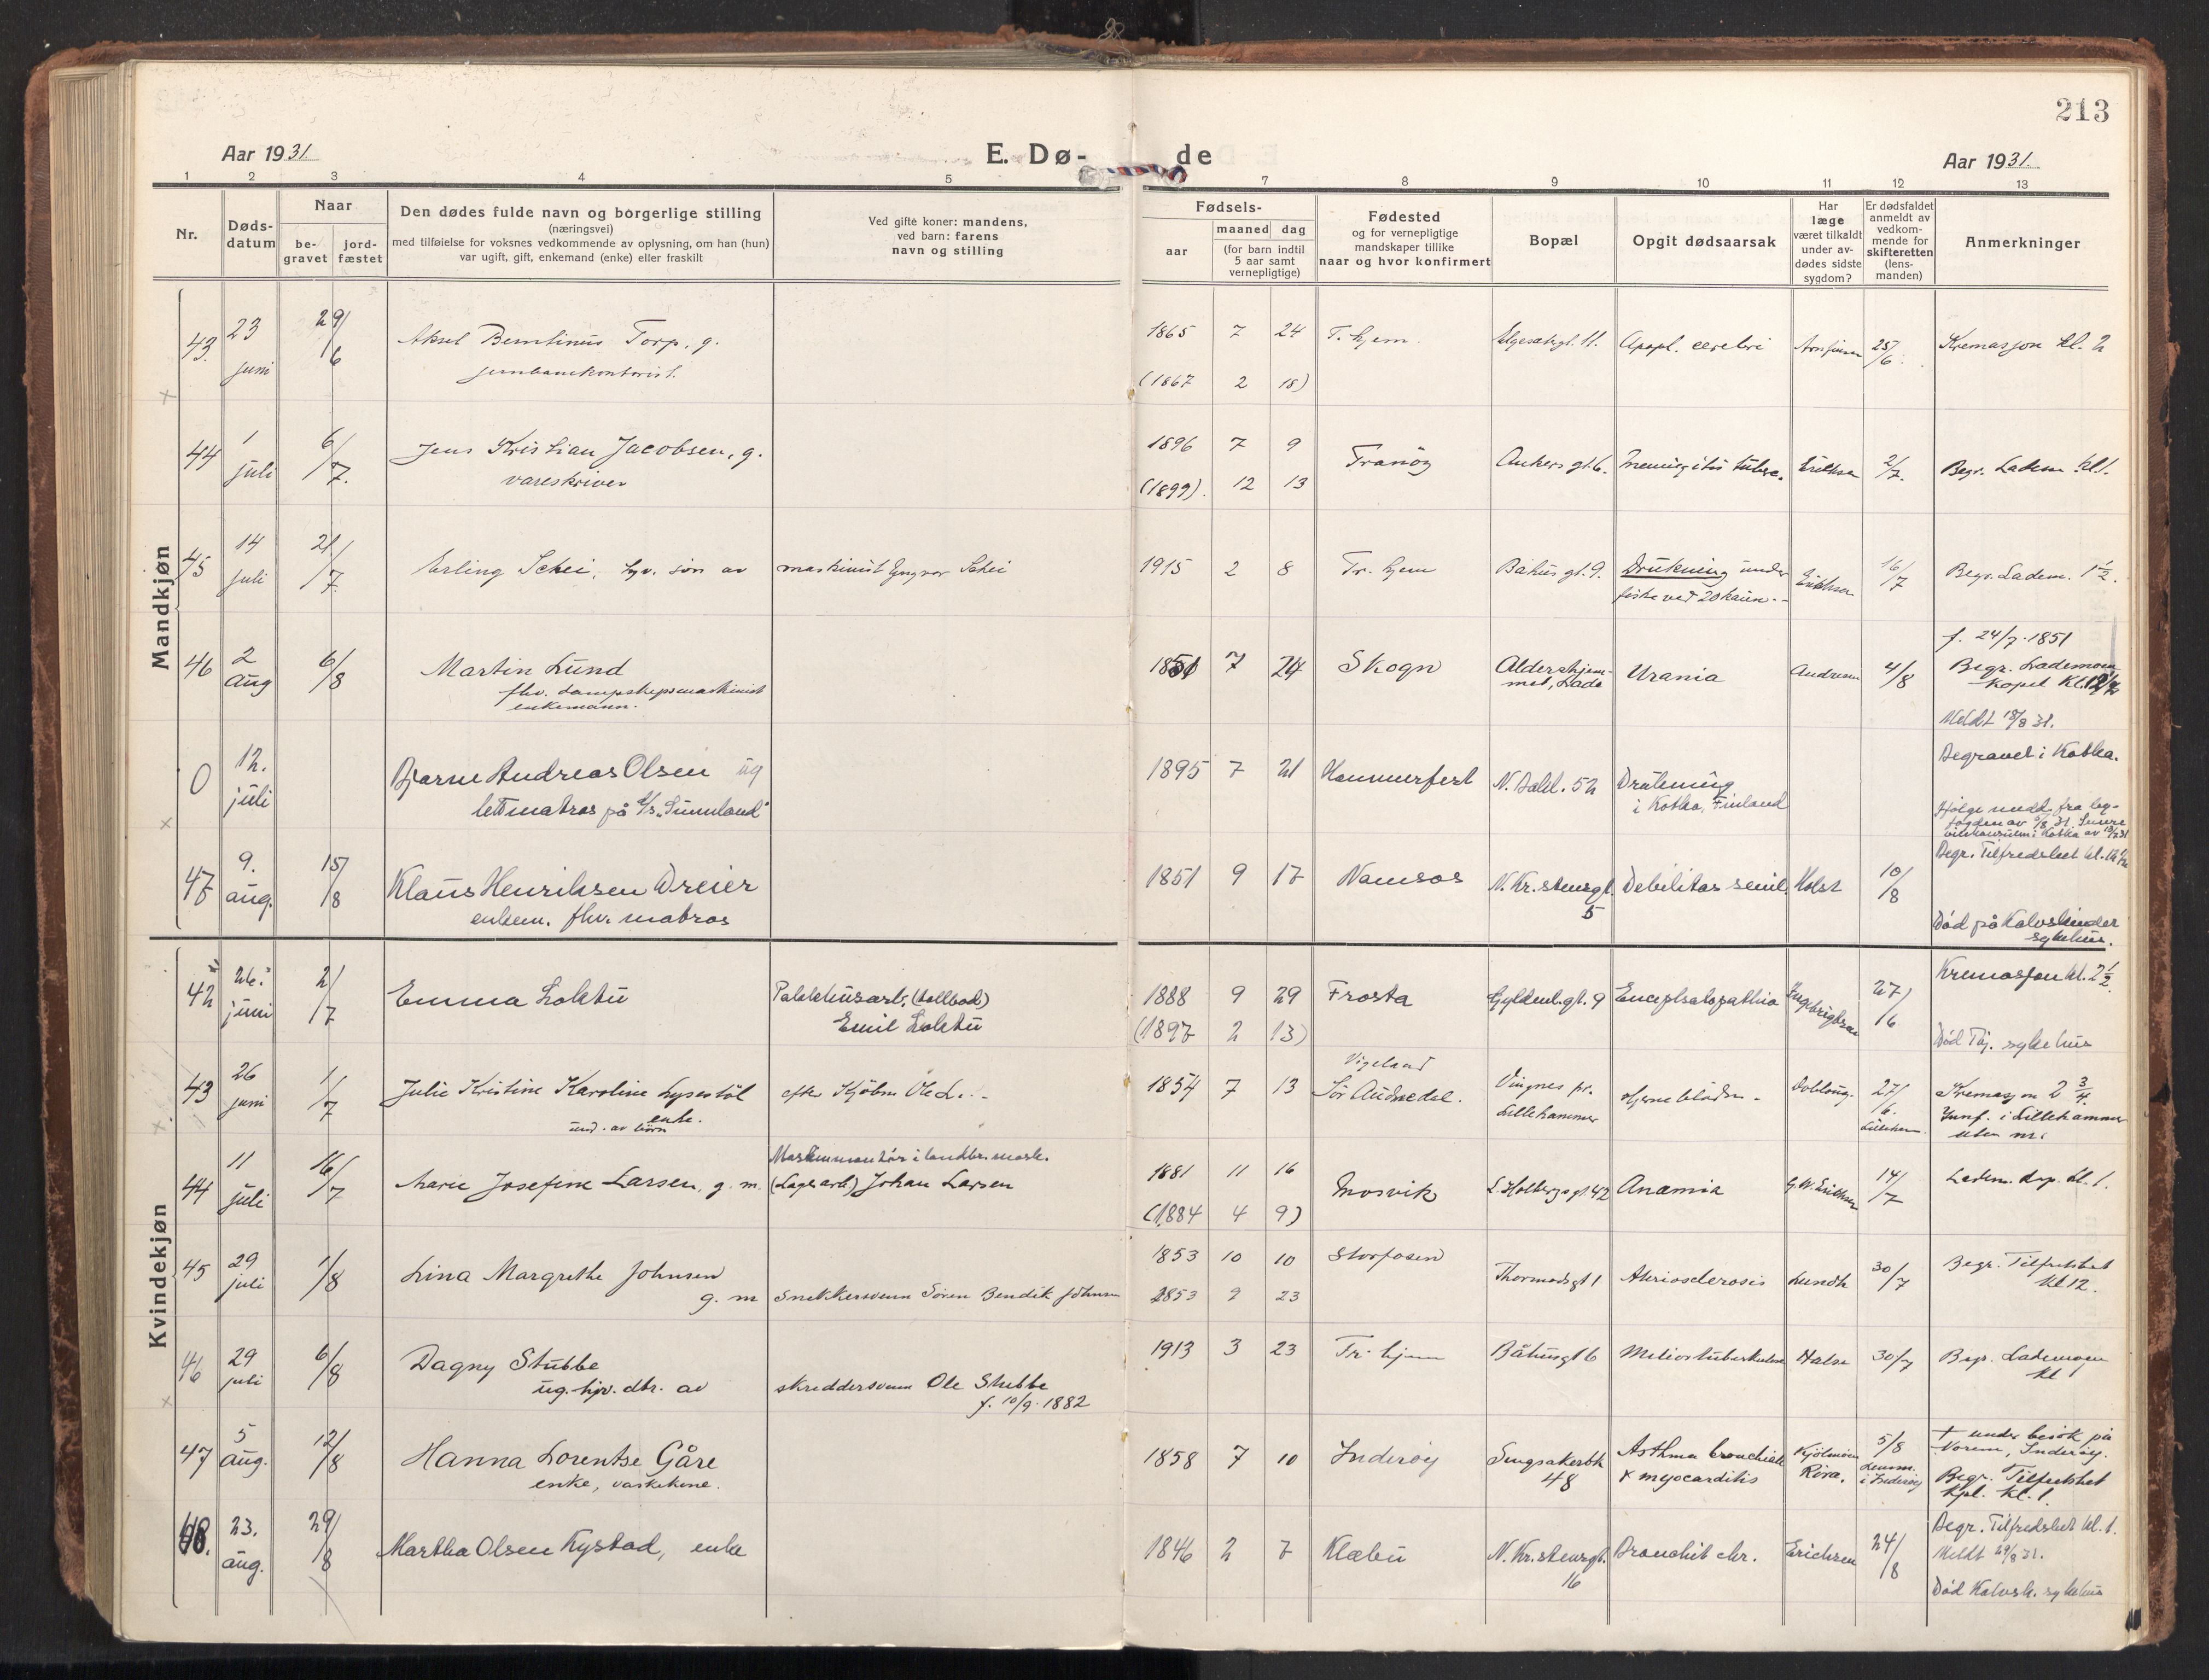 213
Aar 1931.
E. Dø-
de
Aar 1931.
1 2 3 4 5 7 8 9 10 11 12 13
Nr.
Døds-
datum
Naar
be-
gravet
jord-
fæstet
Den dødes fulde navn og borgerlige stilling
(næringsvei)
med tilføielse for voksnes vedkommende av oplysning, om han (hun)
var ugift, gift, enkemand (enke) eller fraskilt
Ved gifte koner: mandens,
ved barn: farens
navn og stilling
Fødsels-
aar
maaned dag
(for barn indtil
5 aar samt
vernepligtige)
Fødested
og for vernepligtige
mandskaper tillike
naar og hvor konfirmert
Bopæl
Opgit dødsaarsak
Har
læge
været tilkaldt
under av-
dødes sidste
sygdom?
Er dødsfaldet
anmeldt av
vedkom-
mende for
skifteretten
(lens-
manden)
Anmerkninger
Mandkjøn
43. 23 juni 29/6 Aksel Torp, g. 1865 7 24 T. hjem. 11. Apopl. cerebri 25/6. Kremasjon kl. 2
jernbanekontorist.
(1867 2 18)
44 1 juli 6/7. Jens Kristian Jacobsen, g. 1896 7 9 Tranöy Ankers gt. 6. Meningitis Eriksen 2/7. Begr. Ladem. kl 1.
vareskriver
(1899). 12 13
45 14 juli 21/7 Erling Schei, sön av maskinist Yngvar Schei 1915 2 8 Tr. hjem Bahus gt. 9. Drukning under 16/7 Begr. Ladem. 1 1/2.
fiske ved
46 2 aug 6/8 Martin Lund 1851 7 24 Skogn Aldershjem- Urania Andresen 4/8 f. 24/7 1851
met, Lade
fhv. dampskipsmaskinist
enkemann.
Begr. Lademoen
Kapel Kl.
Meldt 18/8 31.
0 12. juli Bjarne Andreas Olsen ug 1895 7 21 Hammerfest N. Bakl. 52 Drukning Begravet i Kotka.
lettmatros på s/s "Sunnland" i Kotka, Finland
47 9. aug. 15/8 Klaus Henriksen Dreier 1851 9 17 Namsos N. Kr. stensgt. Debilitas senil. Holst 10/8 Begr. Tilfredshet kl.
5
enkem. fhv. matros
Död på Kalvskindet
sykehus.
Kvindekjøn
42 26. juni 2/7 Emma Loktu Pakkhusarb. (tollbod) 1888 9 29 Frosta Gyldenl. gt. 9 Encephalopathia Ingebrigtsen 27/6 Kremasjon kl. 2 1/2.
Emil Loktu (1897 2 13)
Död sykehus
43 26 juni 1/7 Julie Kristine Karoline Lysestöl 1854 7 13 Vigeland
Sör Audnedal. Vingnes pr.
Lillehammer 27/6. Kremasjon 2 3/4.
enke.
und. av börn
Junf. i Lillehammer
uten nr.
44 11 juli 16/7 Marie Josefine Larsen, g. m. (Lagerarb.) Johan Larsen 1881 11 16 Mosvik L. Holbergs gt. 42 Anamia G. W. Eriksen 14/7 Ladem. kap. kl. 1.
(1884 4 9)
45 29 juli 1/8 Lina Margrethe Johnsen 1853 10 10 Storfosen Thormodsgt 1 Lundh 30/7 Begr. Tilfredshet
kl 12.
g. m snekkersvenn Sören Bendik Johnsen 1853 9 23
46 29 juli 6/8 Dagny Stubbe 1913 3 23 Tr. hjem Båhusgt 6 30/7 Begr. Lademoen
kl
ug. hjv. dtr. av skreddersvenn Ole Stubbe
f. 10/9. 1882
47 5 aug. 12/8 Hanna Lorentse Gåre 1858 7 10 Inderöy Singsakerbk Asthma bronchiale 5/8 † under besök på
Norem, Inderöy.
enke, vaskekone. 48 & myocarditis Lensm.
i Inderöy
Begr. Tilfredshet
Kpl. kl. 1.
48. 23. aug. 29/8 Martha Olsen Kystad, enke 1846 2 7 Klæbu N. Kr. stensgt. Bronchit chr. Erichsen 24/8 Begr. Tilfredshet kl. 1.
16 Meldt 29/8 31.
Död Kalvsk. sykehus